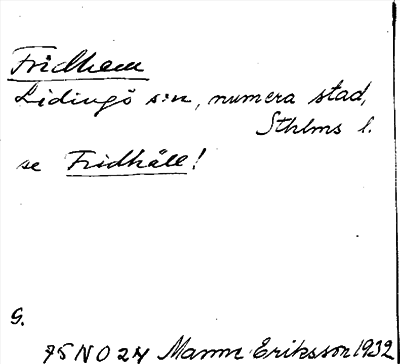 Fridhem
Lidingö s:n, numera stad,
Sthlms l.
se Fridhäll!
G.
75 N O 24 Manne Eriksson 1932